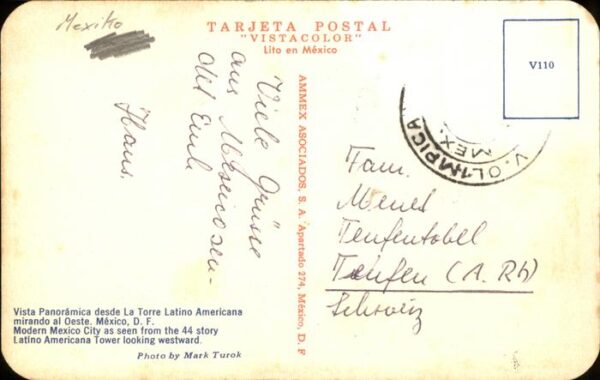 Mexiko
TARJETA POSTAL
"VISTACOLOR"
Lito en México
V110
V. OLIMPICA
MEX.
Viele Grüsse
aus
Hans.
AMMEX ASOCIADOS, S. A. Apartado 274, México, D. F
Fam.
Teufentobel
Teufen (A. Rh)
Schweiz
Vista Panorámica desde La Torre Latino Americana
mirando al Oeste. México, D. F.
Modern Mexico City as seen from the 44 story
Latino Americana Tower looking westward.
Photo by Mark Turok